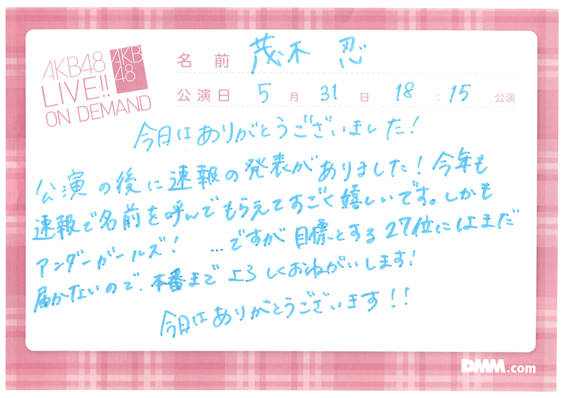 AKB48
LIVE!!
ON DEMAND
AKB
48
名前 茂木 忍
公演日 5月31日 18:15公演
今日はありがとうございました!
公演の後に速報の発表がありました!今年も
速報で名前を呼んでもらえてすごく嬉しいです。しかも
アンダーガールズ! …ですが目標とする27位にはまだ
届かないので、本番まで よろしくおねがいします!
今日はありがとうございます!!
DMM.com